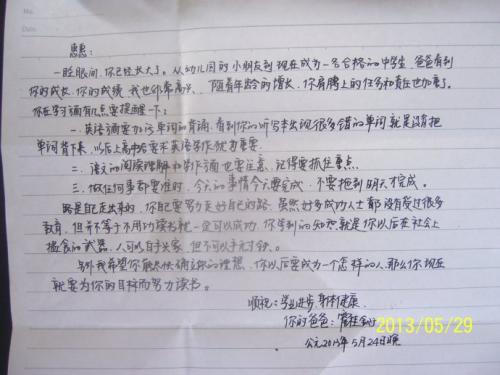 No.
Date
惠惠：
一眨眼间，你已经长大了。从幼儿园的小朋友到现在成为一名合格的中学生，爸爸看到
你的成长，你的成绩，我也非常高兴，随着年龄的增长，你肩膀上的任务和责任也加重了。
你在学习方面有几点要提醒一下：
一、英语方面要加强单词的背诵，看到你的听写本出现很多错的单词就是没有把
单词背下来，以后上高中需要英语写作就更重要。
二、语文的阅读理解和写作方面也要注意，记得要抓住重点。
三、做任何事都要准时，今天的事情今天要完成，不要拖到明天才完成。
路是自己走出来的，你自己要努力走好自己的路，虽然好多成功人士都没有受过很多
教育，但并不等于不用功读书就一定可以成功，你学到的知识就是你以后在社会上
搵食的武器，人可以白手兴家，但不可以手无寸铁。
另外我希望你能尽快确立你的理想，你以后要成为一个怎样的人，那么你现在
就要为你的目标而努力读书。
顺祝：学业进步，身体健康
你的爸爸：
公元2013年5月24日晚
2013/05/29